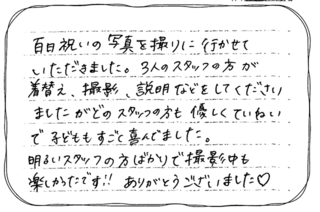 百日祝いの写真を撮りに行かせて
いただきました。3人のスタッフの方が
着替え、撮影、説明などをしてください
ましたがどのスタッフの方も優しくていねい
で子どももすごく喜んでました。
明るいスタッフの方ばかりで撮影中も
楽しかったです!! ありがとうございました♡